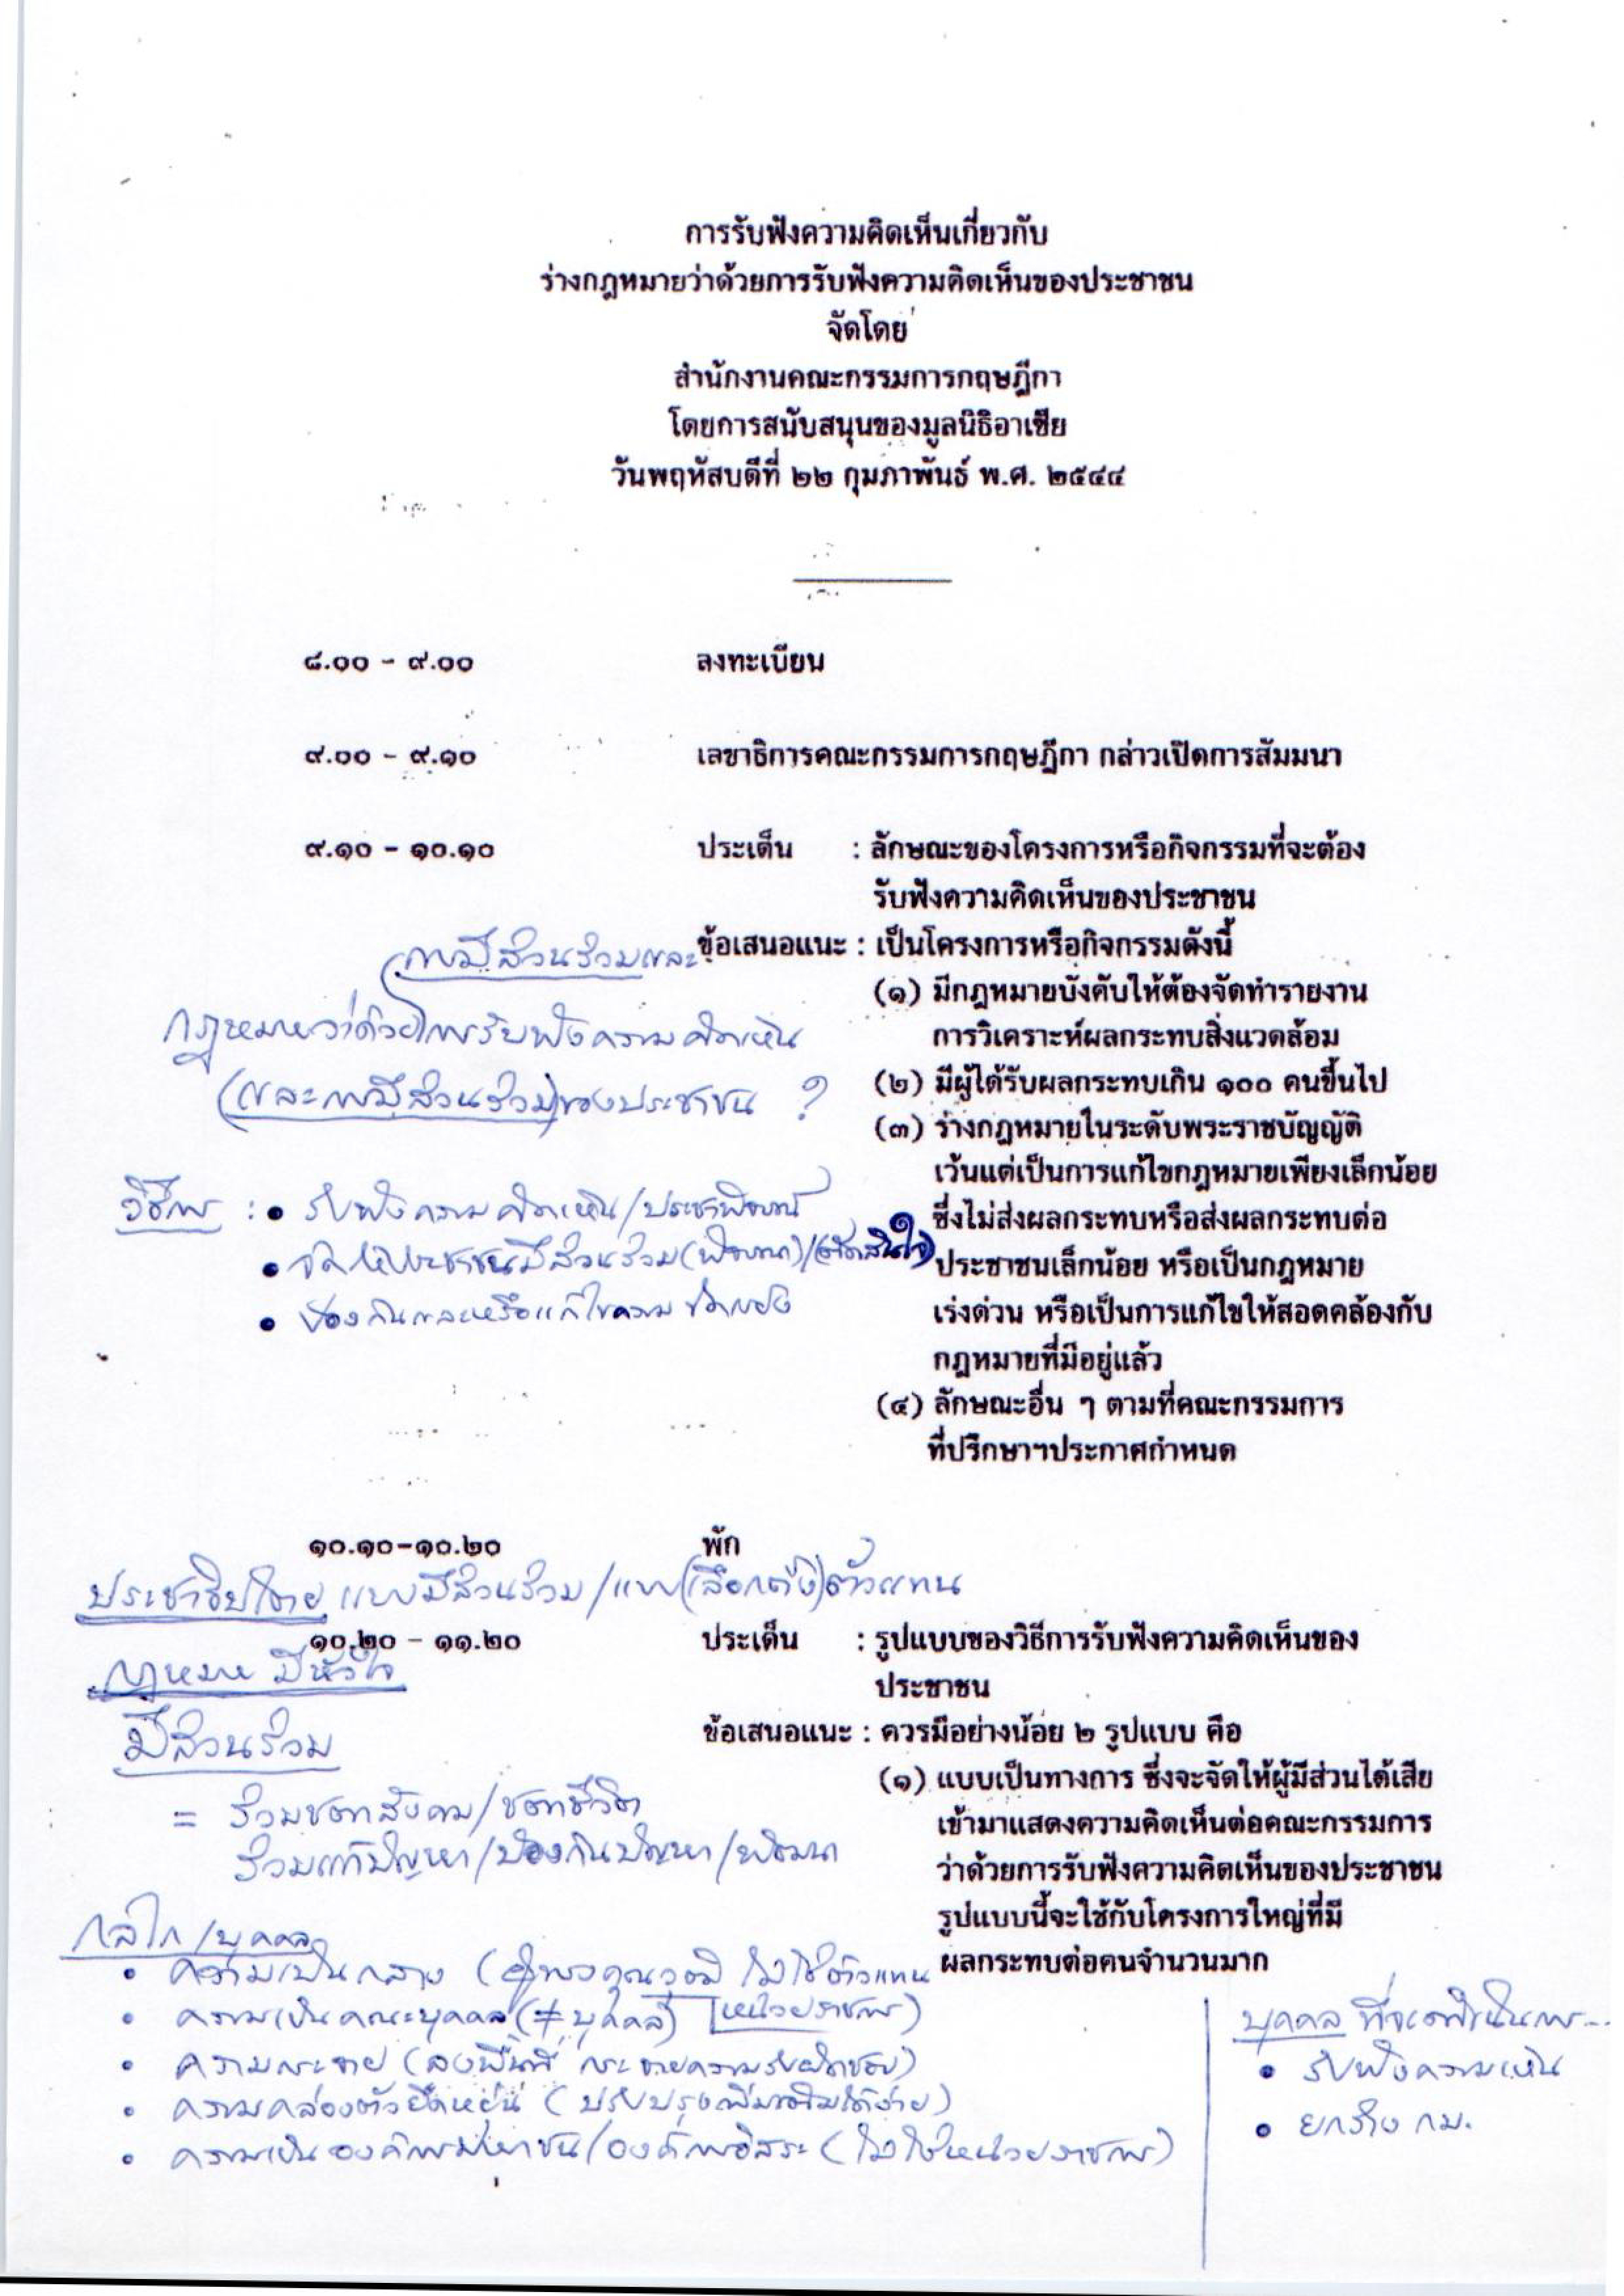 การรับฟังความคิดเห็นเกี่ยวกับ
ร่างกฎหมายว่าด้วยการรับฟังความคิดเห็นของประชาชน
จัดโดย
สำนักงานคณะกรรมการกฤษฎีกา
โดยการสนับสนุนของมูลนิธิอาเซีย
วันพฤหัสบดีที่ ๒๒ กุมภาพันธ์ พ.ศ. ๒๕๔๔
๘.๐๐ - ๙.๐๐ ลงทะเบียน
๙.๐๐ - ๙.๑๐ เลขาธิการคณะกรรมการกฤษฎีกา กล่าวเปิดการสัมมนา
๙.๑๐ - ๑๐.๑๐ ประเด็น : ลักษณะของโครงการหรือกิจกรรมที่จะต้อง
รับฟังความคิดเห็นของประชาชน
ข้อเสนอแนะ : เป็นโครงการหรือกิจกรรมดังนี้
(๑) มีกฎหมายบังคับให้ต้องจัดทำรายงาน
การวิเคราะห์ผลกระทบสิ่งแวดล้อม
(๒) มีผู้ได้รับผลกระทบเกิน ๑๐๐ คนขึ้นไป
(๓) ร่างกฎหมายในระดับพระราชบัญญัติ
เว้นแต่เป็นการแก้ไขกฎหมายเพียงเล็กน้อย
ซึ่งไม่ส่งผลกระทบหรือส่งผลกระทบต่อ
ประชาชนเล็กน้อย หรือเป็นกฎหมาย
เร่งด่วน หรือเป็นการแก้ไขให้สอดคล้องกับ
กฎหมายที่มีอยู่แล้ว
(๔) ลักษณะอื่น ๆ ตามที่คณะกรรมการ
ที่ปรึกษาฯประกาศกำหนด
(การมีส่วนร่วมและ
กฎหมายว่าด้วยการรับฟังความคิดเห็น
(และการมีส่วนร่วม)ของประชาชน ?
วิธีการ : • รับฟังความคิดเห็น/ประชาพิจารณ์
• จัดให้ประชาชนมีส่วนร่วม(พิจารณา)/(ตัดสินใจ)
• ป้องกันและหรือแก้ไขความขัดแย้ง
๑๐.๑๐-๑๐.๒๐ พัก
ประชาธิปไตย แบบมีส่วนร่วม/แบบ(เลือกตั้ง)ตัวแทน
๑๐.๒๐ - ๑๑.๒๐ ประเด็น : รูปแบบของวิธีการรับฟังความคิดเห็นของ
ประชาชน
ข้อเสนอแนะ : ควรมีอย่างน้อย ๒ รูปแบบ คือ
(๑) แบบเป็นทางการ ซึ่งจะจัดให้ผู้มีส่วนได้เสีย
เข้ามาแสดงความคิดเห็นต่อคณะกรรมการ
ว่าด้วยการรับฟังความคิดเห็นของประชาชน
รูปแบบนี้จะใช้กับโครงการใหญ่ที่มี
ผลกระทบต่อคนจำนวนมาก
กฎหมาย มีหัวใจ
มีส่วนร่วม
= ร่วมชะตาสังคม/ชะตาชีวิต
ร่วมแก้ปัญหา/ป้องกันปัญหา/พัฒนา
กลไก/บุคคล
• ความเป็นกลาง (ผู้ทรงคุณวุฒิ ไม่ใช่ตัวแทน
• ความเป็นคณะบุคคล (≠ บุคคล) หน่วยราชการ)
• ความกระจาย (ลงพื้นที่ กระจายความรับผิดชอบ)
• ความคล่องตัวยืดหยุ่น (ปรับปรุงเพิ่มเติมได้ง่าย)
• ความเป็นองค์การมหาชน/องค์การอิสระ (ไม่ใช่หน่วยราชการ)
บุคคล ที่จะดำเนินการ...
• รับฟังความเห็น
• ยกร่าง กม.